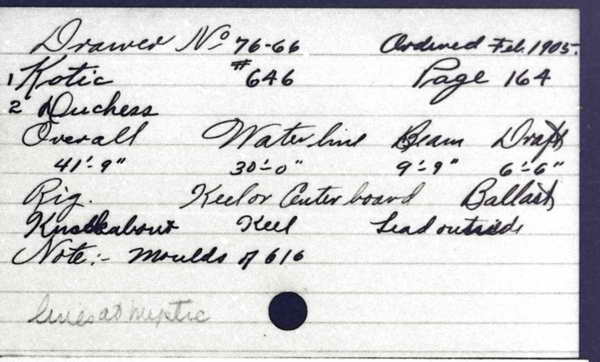 Drawer No 76-66 Ordered Feb. 1905.
1 Kotic #646 Page 164
2 Duchess
Overall Water line Beam Draft
41'-9" 30'-0" 9'-9" 6'-6"
Rig. Keel or Centerboard Ballast
Knockabout Keel Lead outside
Note:- Moulds of 616
lines at Mystic